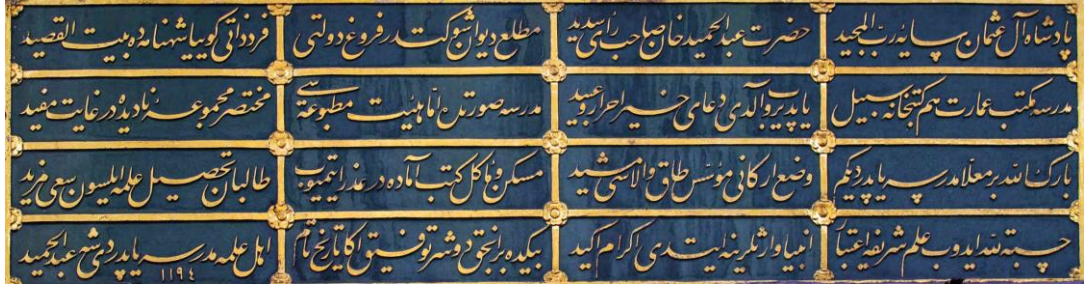 پادشاه آل عثمان سایۀ رب المجید حضرت عبد الحمید خان صاحب رأی سدید مطلع دیوان شوکتدر فروغ دولتی فرد ذاتی گوییا شهنامه ده بیت القصید
مدرسه مکتب عمارت هم کتبخانه سبیل یاپدیروب آلدی دعای خیر احرار و عبید مدرسه صورتده اما هیئت مطبوعه سی مختصر مجموعۀ نادیده در غایت مفید
بارک الله بر معلا مدرسه یاپدردیکم وضع ارکانی مؤسس طاق والاسی مشید مسکن و مأکل کتب آماده در عذر ایتمیوب طالبان تحصیل علمه ایلسون سعی مزید
حسبة لله ایدوب علم شریفه اعتبار انبیا وارثلرینه ایتدی اکرام اکید بیکده بر انجق دوشر توفیق اکا تاریخ تام اهل علمه مدرسه یاپدردی شه عبد الحمید
۱۱۹۴